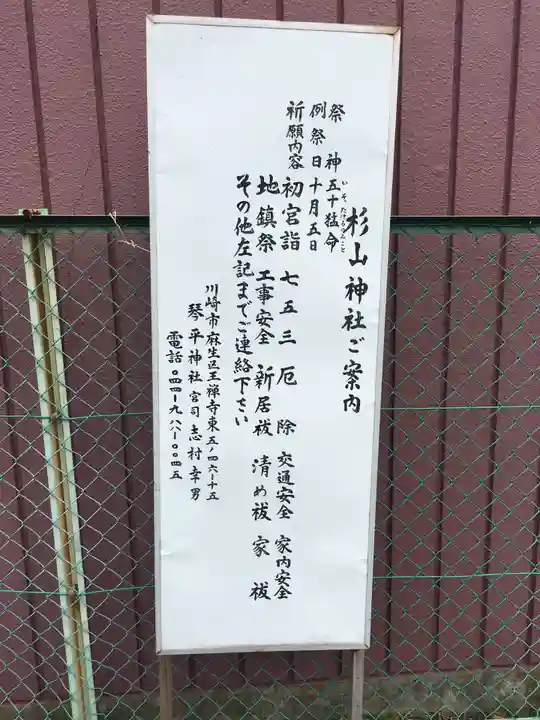 杉山神社ご案内
祭神 五十猛命
いそたけるのみこと
例祭日 十月五日
祈願内容 初宮詣 七五三 厄除 交通安全 家内安全
地鎮祭 工事安全 新居祓 清め祓 家祓
その他左記までご連絡下さい
川崎市麻生区王禅寺東五ノ四六ー十五
琴平神社宮司志村幸男
電話〇四四ー九八八ー〇〇四五